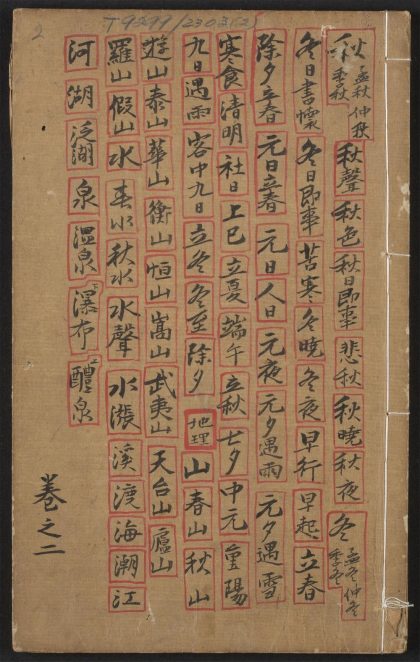 T9299/2303(2)
2
秋 孟秋 仲秋 季秋 秋聲 秋色 秋日即事 悲秋 秋曉 秋夜 冬 孟冬 仲冬 季冬
冬日書懷 冬日即事 苦寒 冬曉 冬夜 早行 早起 立春
除夕立春 元日立春 元日 人日 元夜 元夕遇雨 元夕遇雪
寒食 清明 社日 上巳 立夏 端午 立秋 七夕 中元 重陽
九日遇雨 客中九日 立冬 冬至 除夕 地理 山 春山 秋山
遊山 泰山 華山 衡山 恒山 嵩山 武夷山 天台山 廬山
羅山 假山 水 春水 秋水 水聲 水漲 溪 渡 海 潮 江
河 湖 泛湖 泉 溫泉 瀑布 醴泉
卷之二